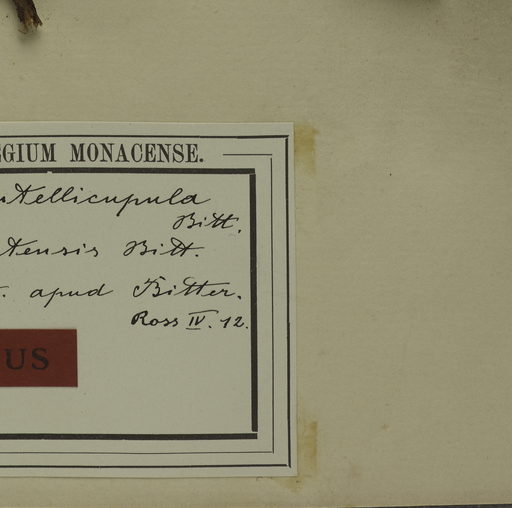 GIUM MONACENSE.
ntellicupula
Bitt.
tensis Bitt.
. apud Bitter.
Ross IV. 12.
US